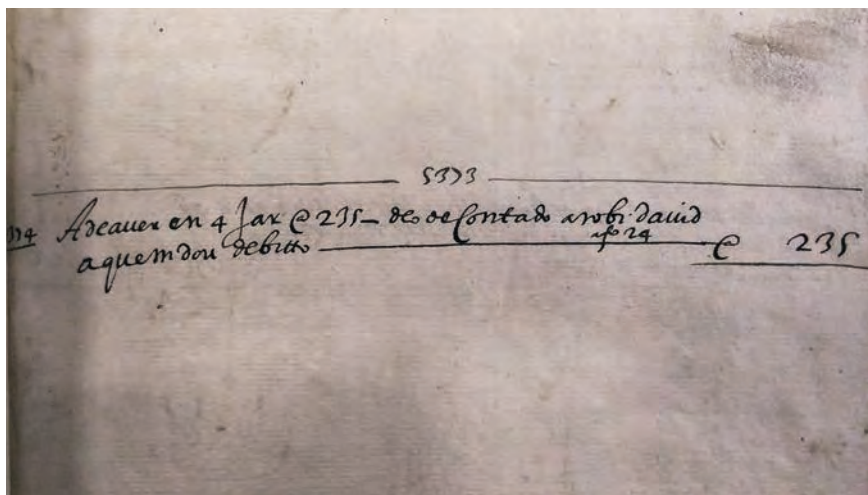 5373
374 A de aver en 4 Jar @ 235 – deo de Contado a robi david
a quem dou debitto afo 24 @ 235